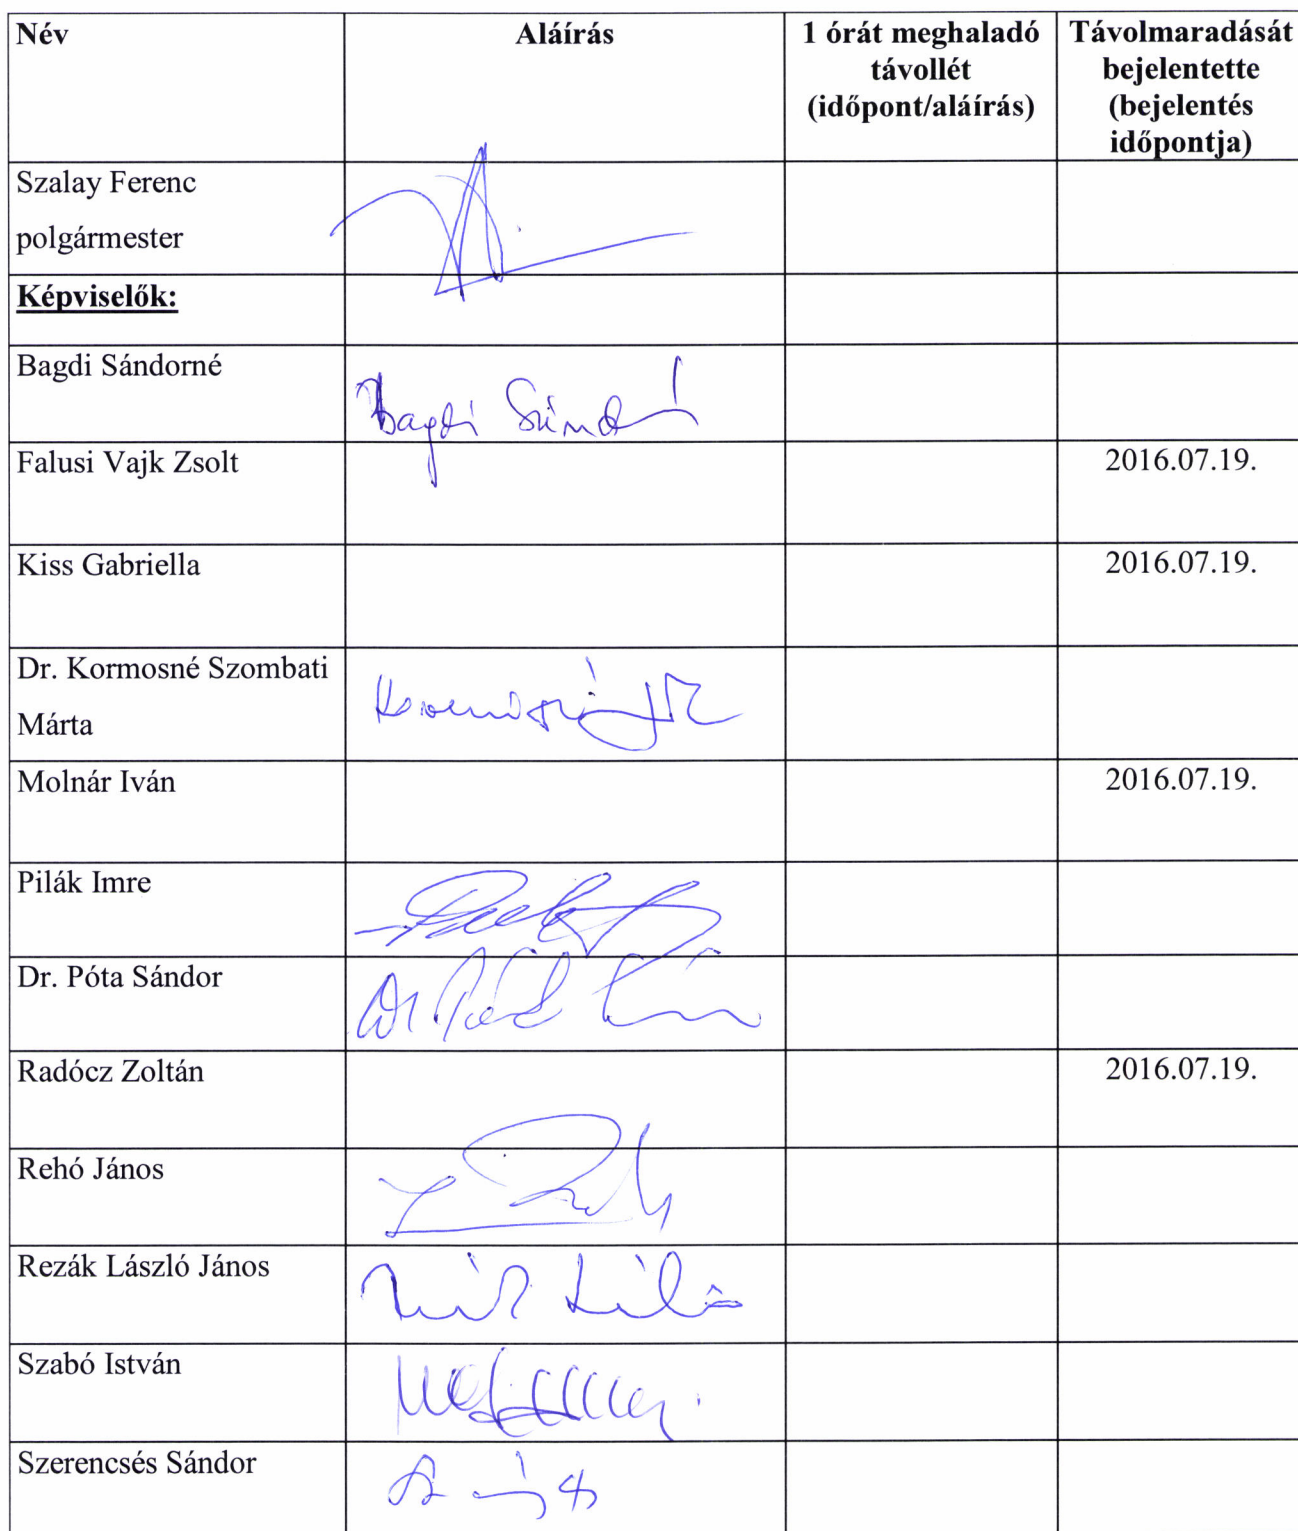 Név
Aláírás
1 órát meghaladó
távollét
(időpont/aláírás)
Távolmaradását
bejelentette
(bejelentés
időpontja)
Szalay Ferenc
polgármester
Képviselők:
Bagdi Sándorné
Bagdi Sándorné
Falusi Vajk Zsolt
2016.07.19.
Kiss Gabriella
2016.07.19.
Dr. Kormosné Szombati
Márta
Molnár Iván
2016.07.19.
Pilák Imre
Dr. Póta Sándor
Radócz Zoltán
2016.07.19.
Rehó János
Rezák László János
Szabó István
Szerencsés Sándor